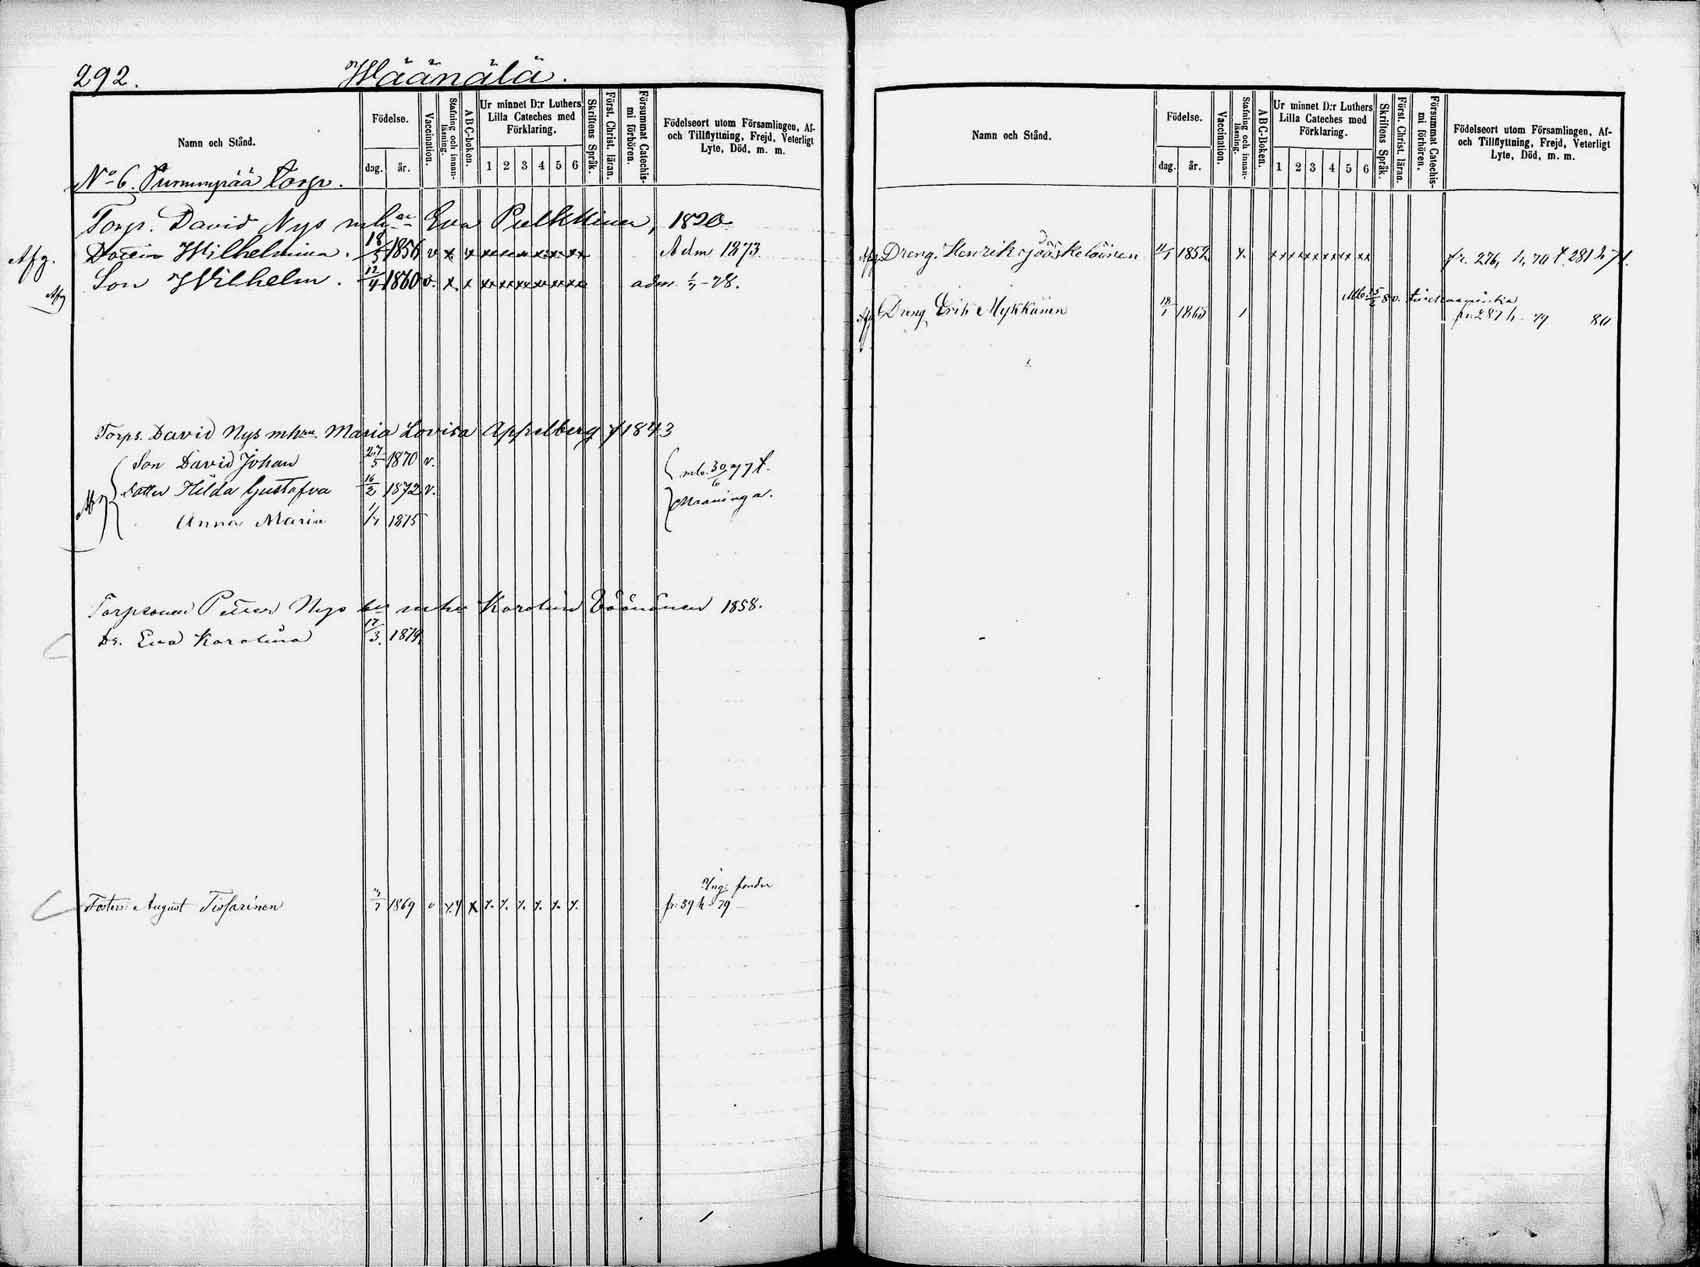 292. Wäänälä.
Namn och Stånd.
Födelse.
dag. år.
Vaccination.
Stafning och innan-läsning.
ABC-Boken.
Ur minnet D:r Luthers Lilla Cateches med Förklaring.
1 2 3 4 5 6
Skriftens Språk.
Först. Christ. läran.
Försummat Catechis-mi förhören.
Födelseort utom Församlingen, Af-och Tillflyttning, Frejd, Veterligt Lyte, Död, m. m.
No 6. Purumpää Torp.
Torp. David Nys mh Eva Pulkkinen, 1820
Afg. Dottern Wilhelmina. 18/5 1856 v x x xxxxxxxxx Adm 1873
Afg Son Wilhelm. 12/4 1860 v. x x xxxxxxxxx adm -78.
Torps. David Nys mh Maria Lovisa Appelberg f 1843
Son David Johan 27/5 1870 v.
Dotter Hilda Gustafva 16/2 1872 v. mb. 30/6 77 t.
Anna Maria 1875 Maaninga.
Torpsonen Petter Nys mhu Karolina Väänänen 1858.
Dr. Eva Karolina 17/3 1879
Ung. fonder
August Tissarinen 1869 v x x x x x x x fr. 39 h -79
Namn och Stånd.
Födelse.
dag. år.
Vaccination.
Stafning och innan-läsning.
ABC-Boken.
Ur minnet D:r Luthers Lilla Cateches med Förklaring.
1 2 3 4 5 6
Skriftens Språk.
Först. Christ. läran.
Försummat Catechis-mi förhören.
Födelseort utom Församlingen, Af-och Tillflyttning, Frejd, Veterligt Lyte, Död, m. m.
Afg Dreng. Henrik Jääskeläinen 1852 x. xxxxxxxxx fr. 276, h, 70 t. 281 h 71.
Dreng Erik Mykkänen 18/1 1863 fr. 287 h -79 80